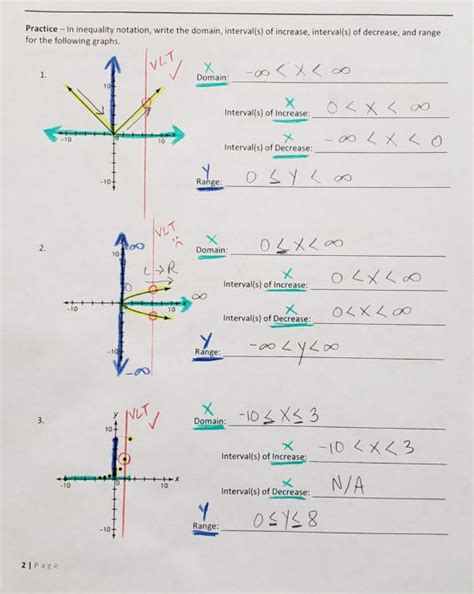 Practice – In inequality notation, write the domain, interval(s) of increase, interval(s) of decrease, and range
for the following graphs.
1.
VLT ✓
10
-10
10
-10
X
Domain: -∞ < X < ∞
X
Interval(s) of Increase: 0 < X < ∞
X
Interval(s) of Decrease: -∞ < X < 0
Y
Range: 0 ≤ Y < ∞
2.
VLT
∞
10
L→R
0
∞
-10
10
-10
-∞
X
Domain: 0 ≤ X < ∞
X
Interval(s) of Increase: 0 < X < ∞
X
Interval(s) of Decrease: 0 < X < ∞
Y
Range: -∞ < Y < ∞
3.
y
VLT ✓
10
-10
0
10
x
-10
X
Domain: -10 ≤ X ≤ 3
X
Interval(s) of Increase: -10 < X < 3
X
Interval(s) of Decrease: N/A
Y
Range: 0 ≤ Y ≤ 8
2 | Page